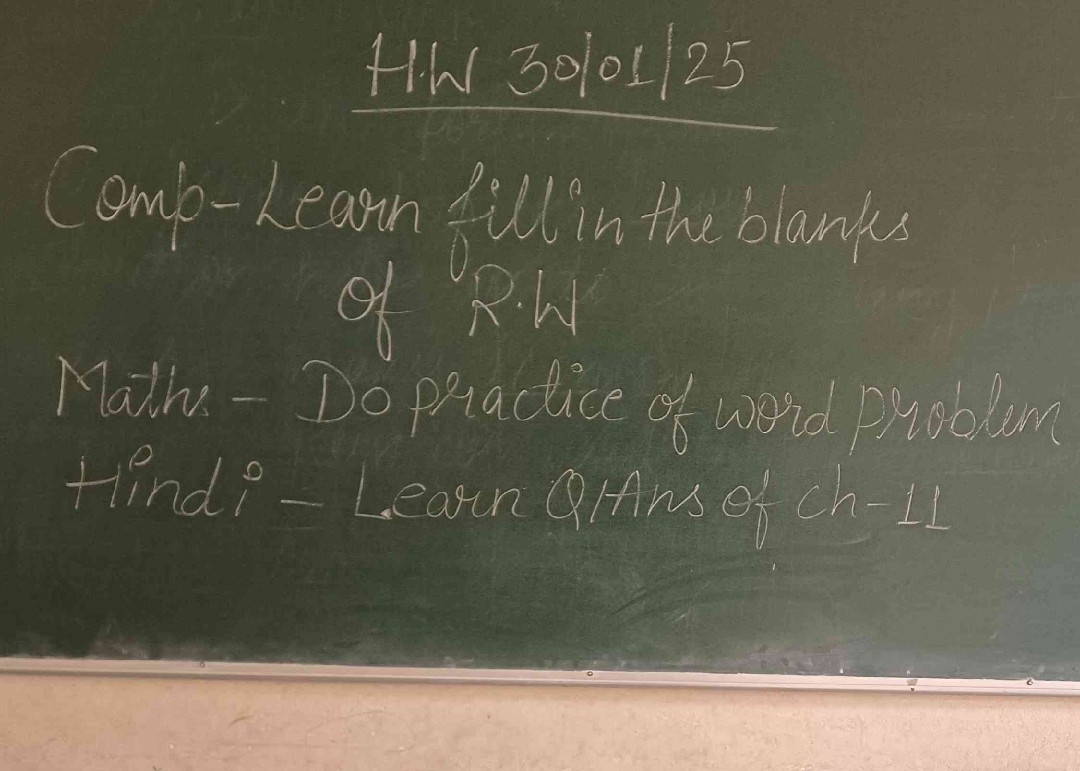 H.W 30/01/25
Comp - Learn fill in the blanks
of R.W
Maths - Do practice of word problem
Hindi - Learn Q/Ans of ch-11